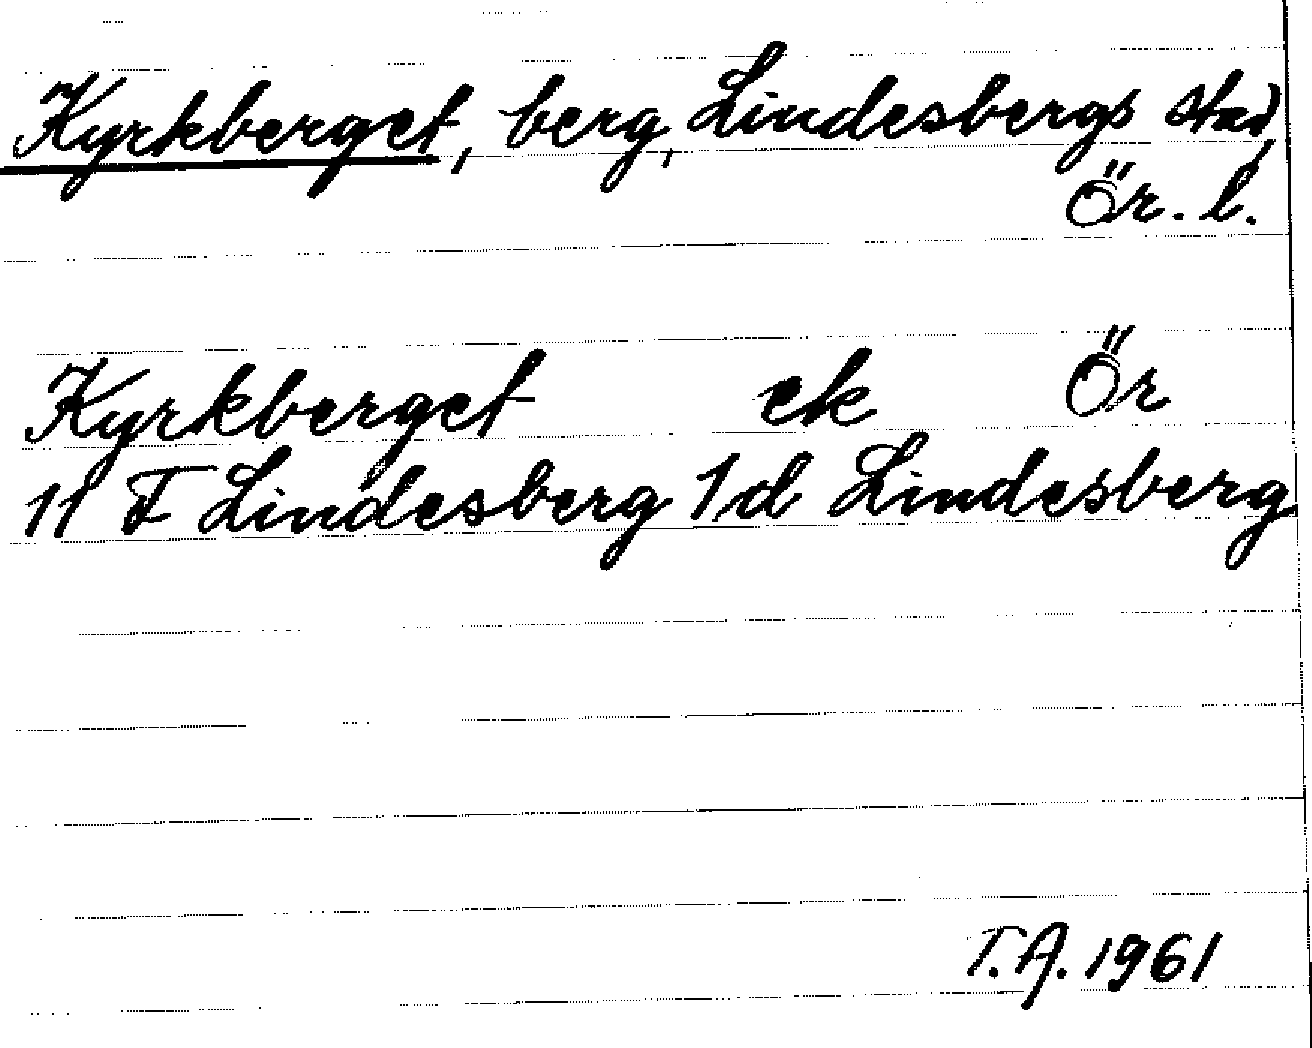 Kyrkberget, berg, Lindesbergs stad,
Ör. l.
Kyrkberget ek Ör
11 F Lindesberg 1d Lindesberg
T.A. 1961